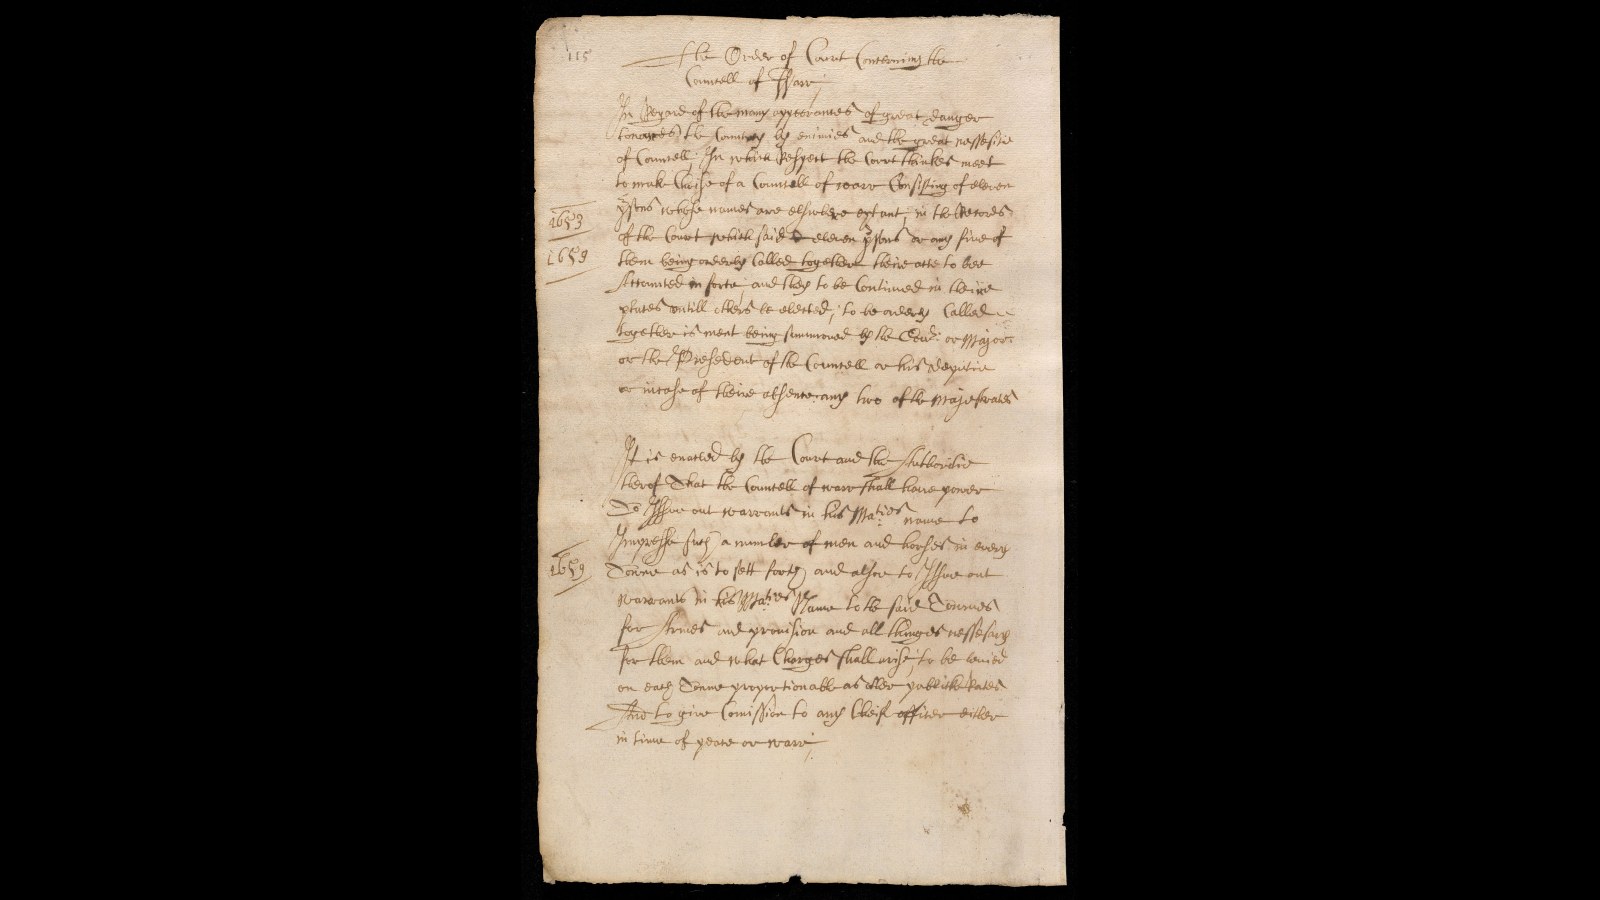 115
The Order of Court Concerning the
Councell of Warr;
In Regard of the many appeerances of great danger
towards the Countrey by enimies and the great nessesitie
of Councell; In which Respect the Court thinkes meet
to make Choise of a Councell of warr Consisting of eleven
psons whose names are elswhere extant; in the Records
1653
of the Court which said eleven psons or any five of
1659
them being orderly Called together theire acte to bee
Accounted in force; and they to be Continued in theire
places untill others be elected; to be orderly Called
together is meat being summoned by the Gour: or Major:
or the Presedent of the Councell or his deputie
or incase of theire absence: any two of the Majestrates
It is enacted by the Court and the Authoritie
therof That the Councell of warr shall have power
To Issue out warrants in his Maties name to
Impresse such a number of men and horses in every
1659
Towne as is to sett forth and alsoe to Issue out
warrants in his Maties Name to the said Townes
for Armes and provision and all thinges nessesary
for them and what Charges shall arise; to be levied
on each Towne proportionable as other publicke Rates
And to give Comission to any Cheif officer either
in time of peace or warr;